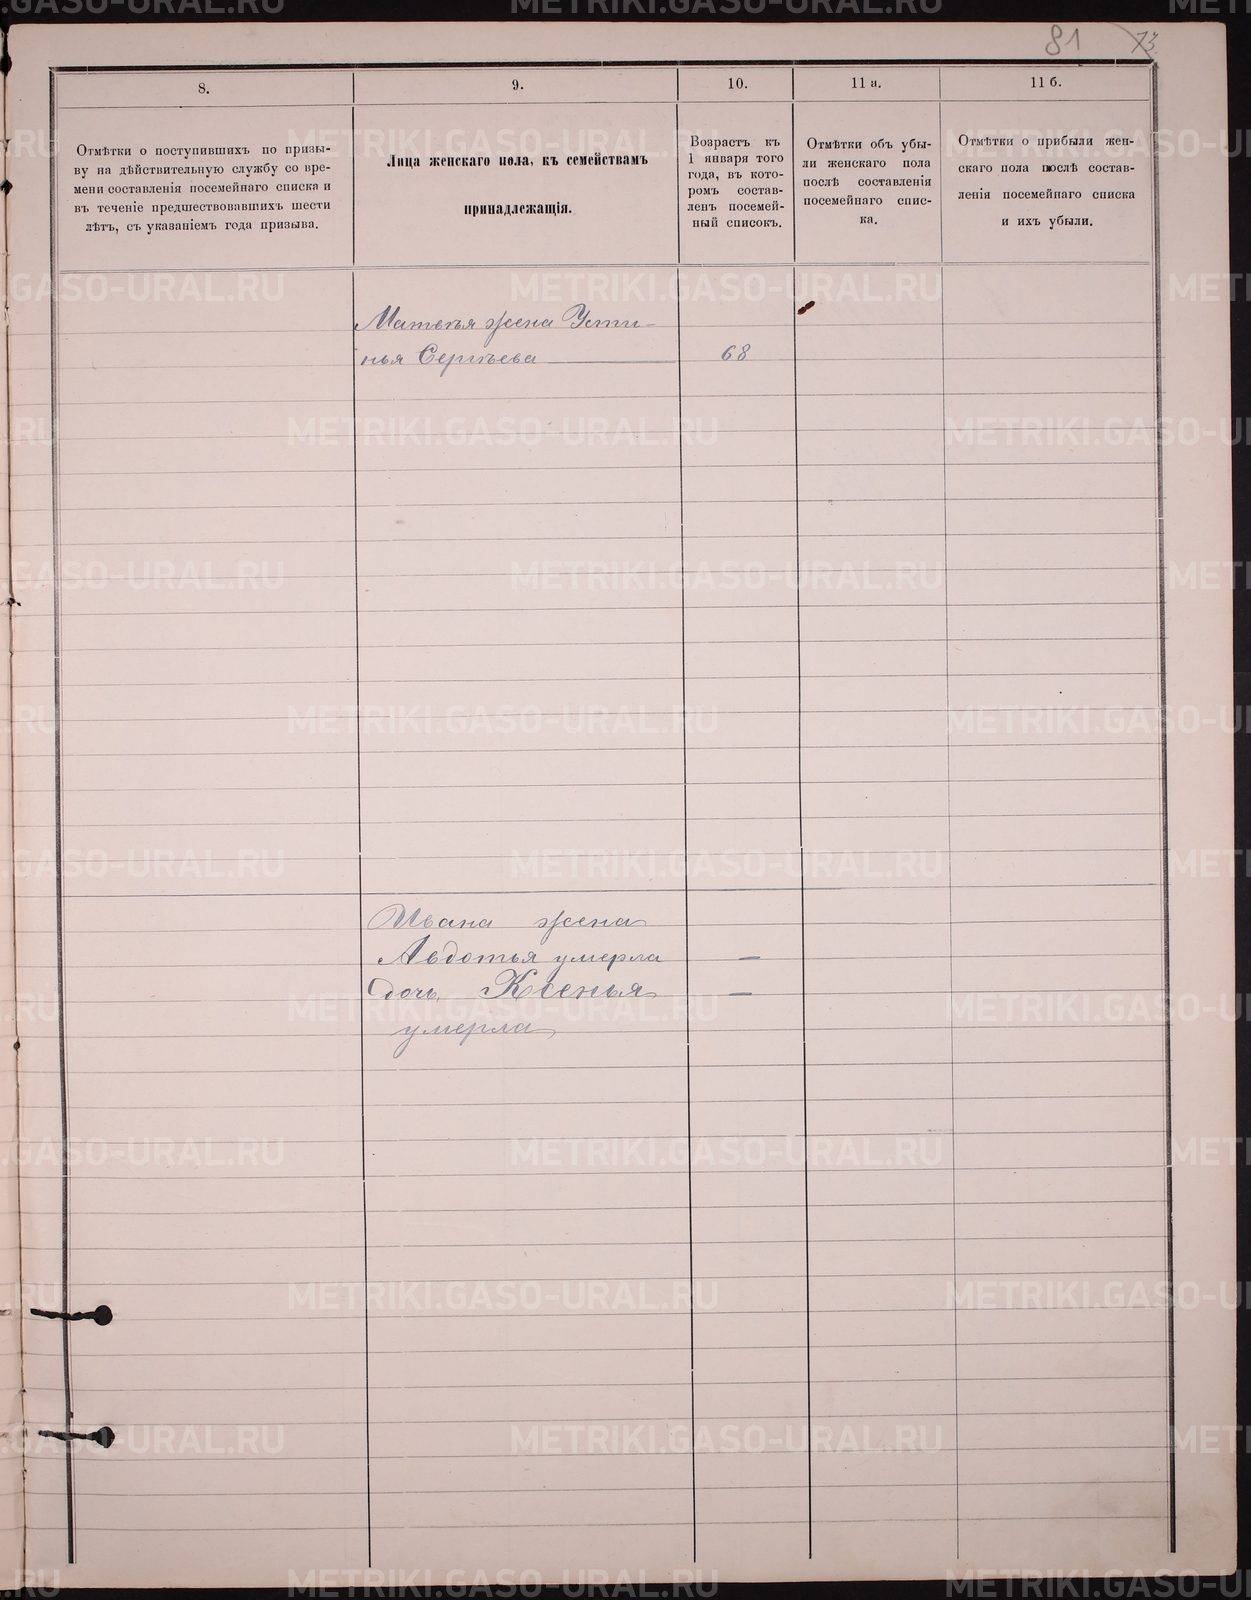 81 73
8.
9.
10.
11 а.
11 б.
Отмѣтки о поступившихъ по призы-
ву на дѣйствительную службу со вре-
мени составленія посемейнаго списка и
въ теченіе предшествовавшихъ шести
лѣтъ, съ указаніемъ года призыва.
Лица женскаго пола, къ семействамъ
принадлежащія.
Возрастъ къ
1 января того
года, въ кото-
ромъ состав-
ленъ посемей-
ный списокъ.
Отмѣтки объ убы-
ли женскаго пола
послѣ составленія
посемейнаго спис-
ка.
Отмѣтки о прибыли жен-
скаго пола послѣ состав-
ленія посемейнаго списка
и ихъ убыли.
Матвѣя жена Усти-
нья Сергѣева 68
Ивана жена
Авдотья умерла —
дочь Ксенья —
умерла
METRIKI.GASO-URAL.RU